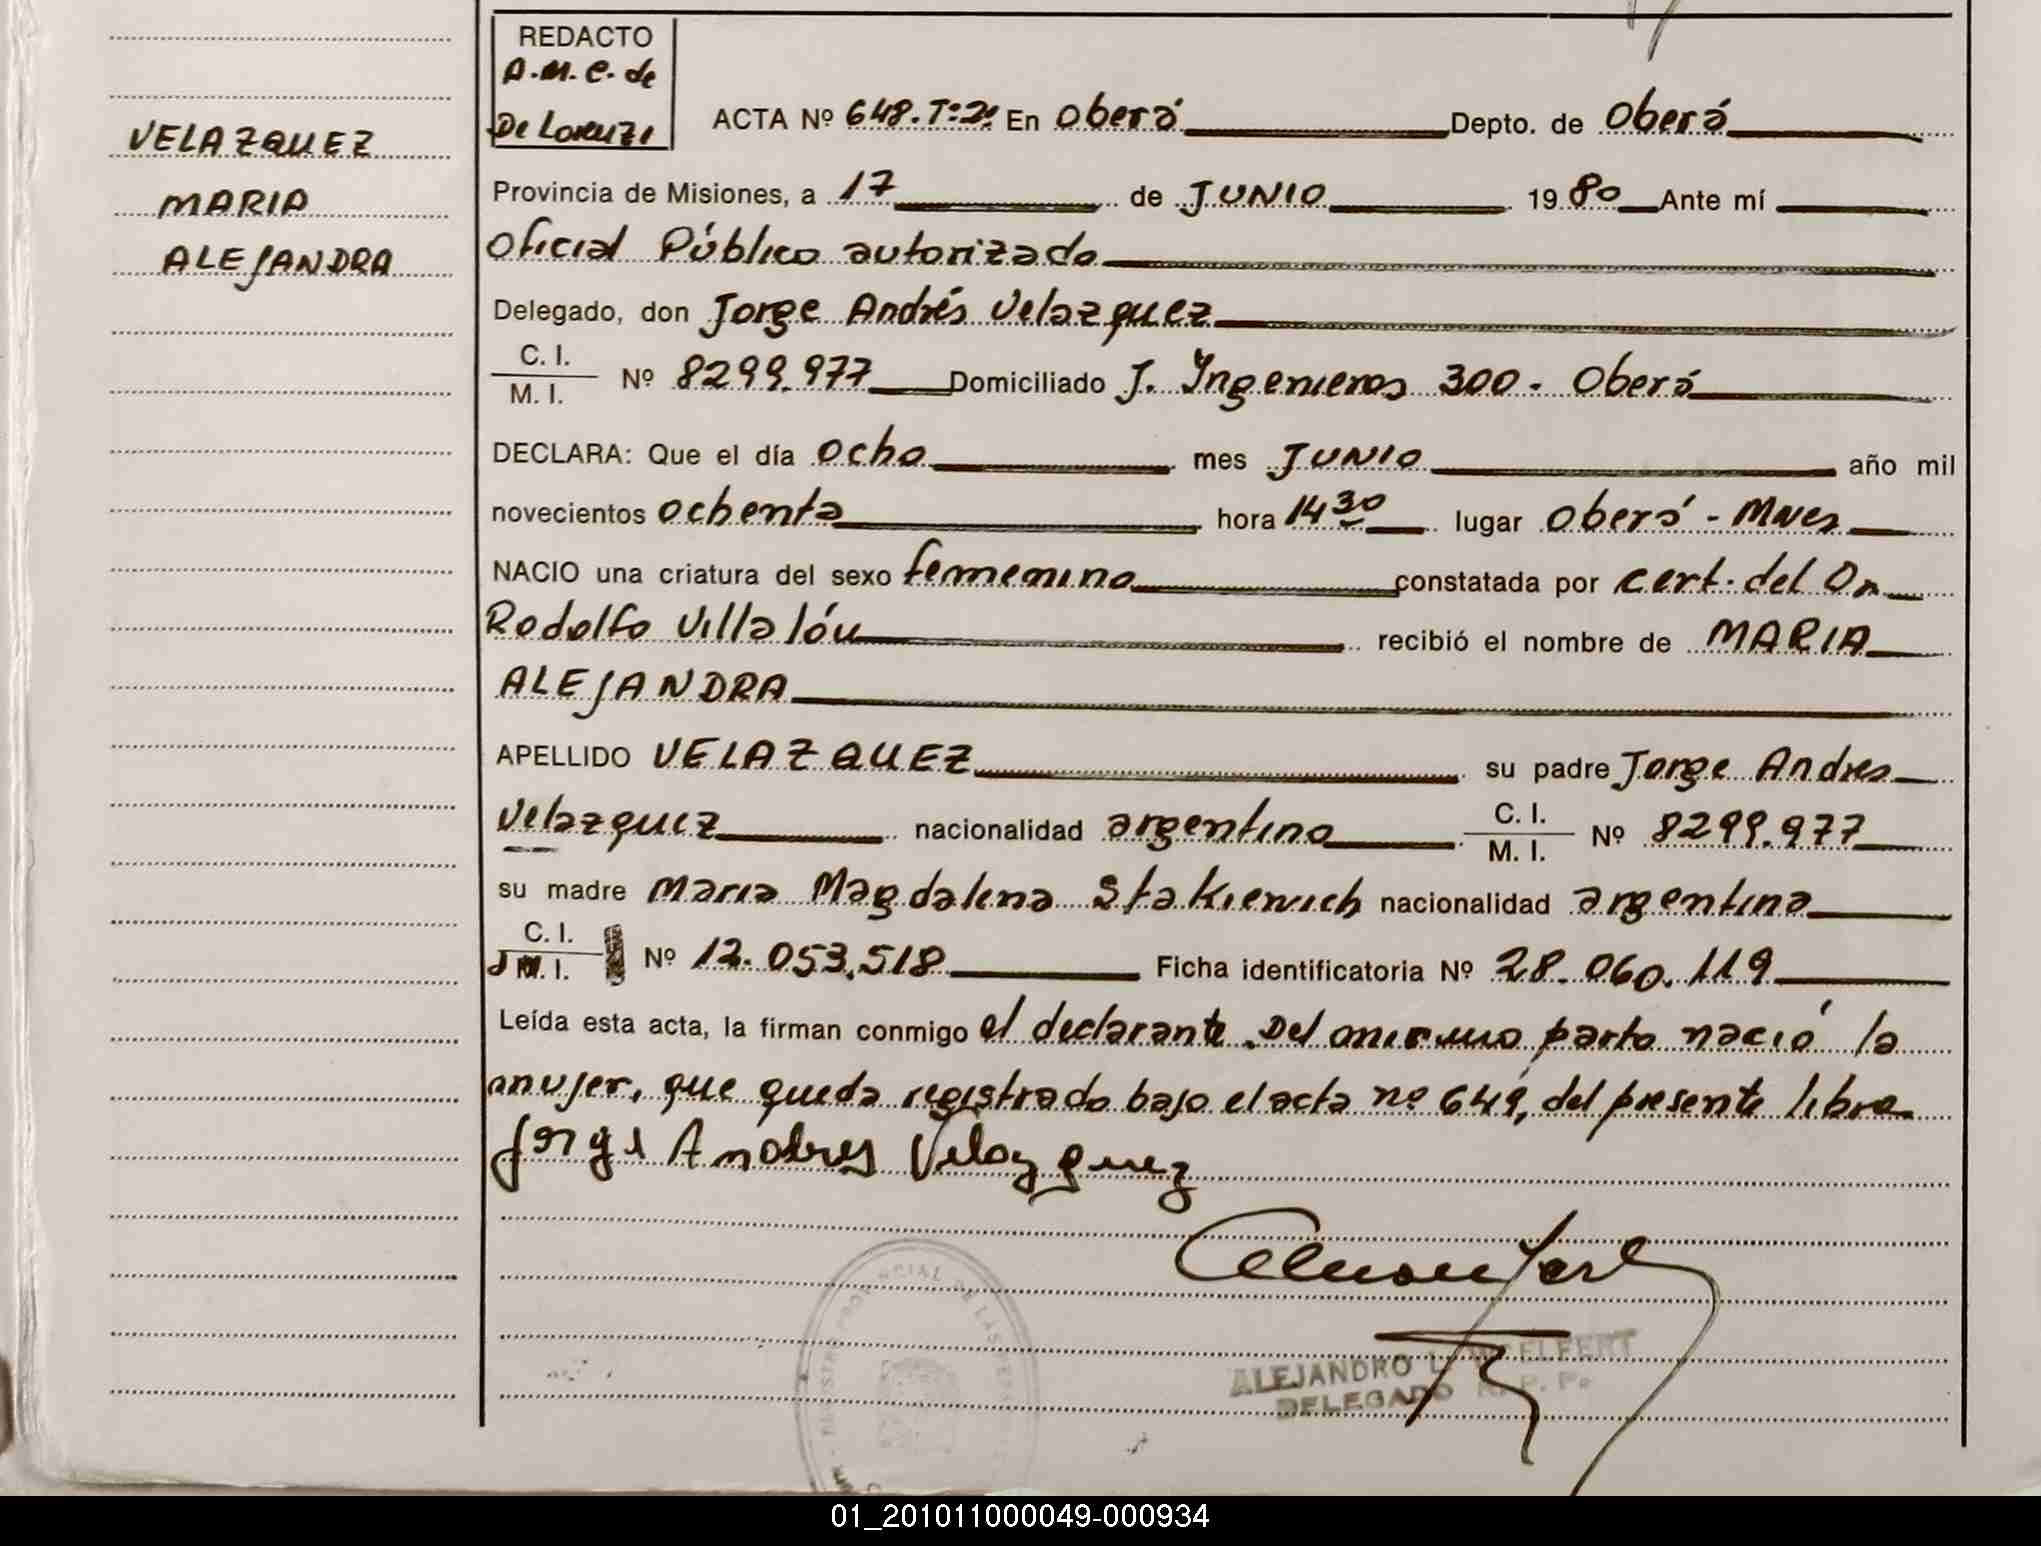 REDACTO
A.M.C. de
De Lorenzi
VELAZQUEZ
MARIA
ALEJANDRA
ACTA Nº 648.Tº2º En Oberá Depto. de Oberá
Provincia de Misiones, a 17 de JUNIO 1980 Ante mí
Oficial Público autorizado
Delegado, don Jorge Andrés Velazquez
C. I.
M. I. Nº 8299.977 Domiciliado J. Ingenieros 300 - Oberá
DECLARA: Que el día Ocho mes JUNIO año mil
novecientos ochenta hora 14 30 lugar Oberá - Mnes
NACIO una criatura del sexo femenino constatada por cert. del Dr
Rodolfo Villalón recibió el nombre de MARIA
ALEJANDRA
APELLIDO VELAZQUEZ su padre Jorge Andres
Velazquez nacionalidad argentino C. I.
M. I. Nº 8299.977
su madre Maria Magdalena Stakiewich nacionalidad argentina
C. I.
M. I. Nº 12.053.518 Ficha identificatoria Nº 28.060.119
Leída esta acta, la firman conmigo el declarante. Del mismo parto nació la
mujer, que queda registrado bajo el acta nº 649, del presente libro
Jorge Andres Velazquez
ALEJANDRO L. DELEGADO R. P. P.
01_201011000049-000934